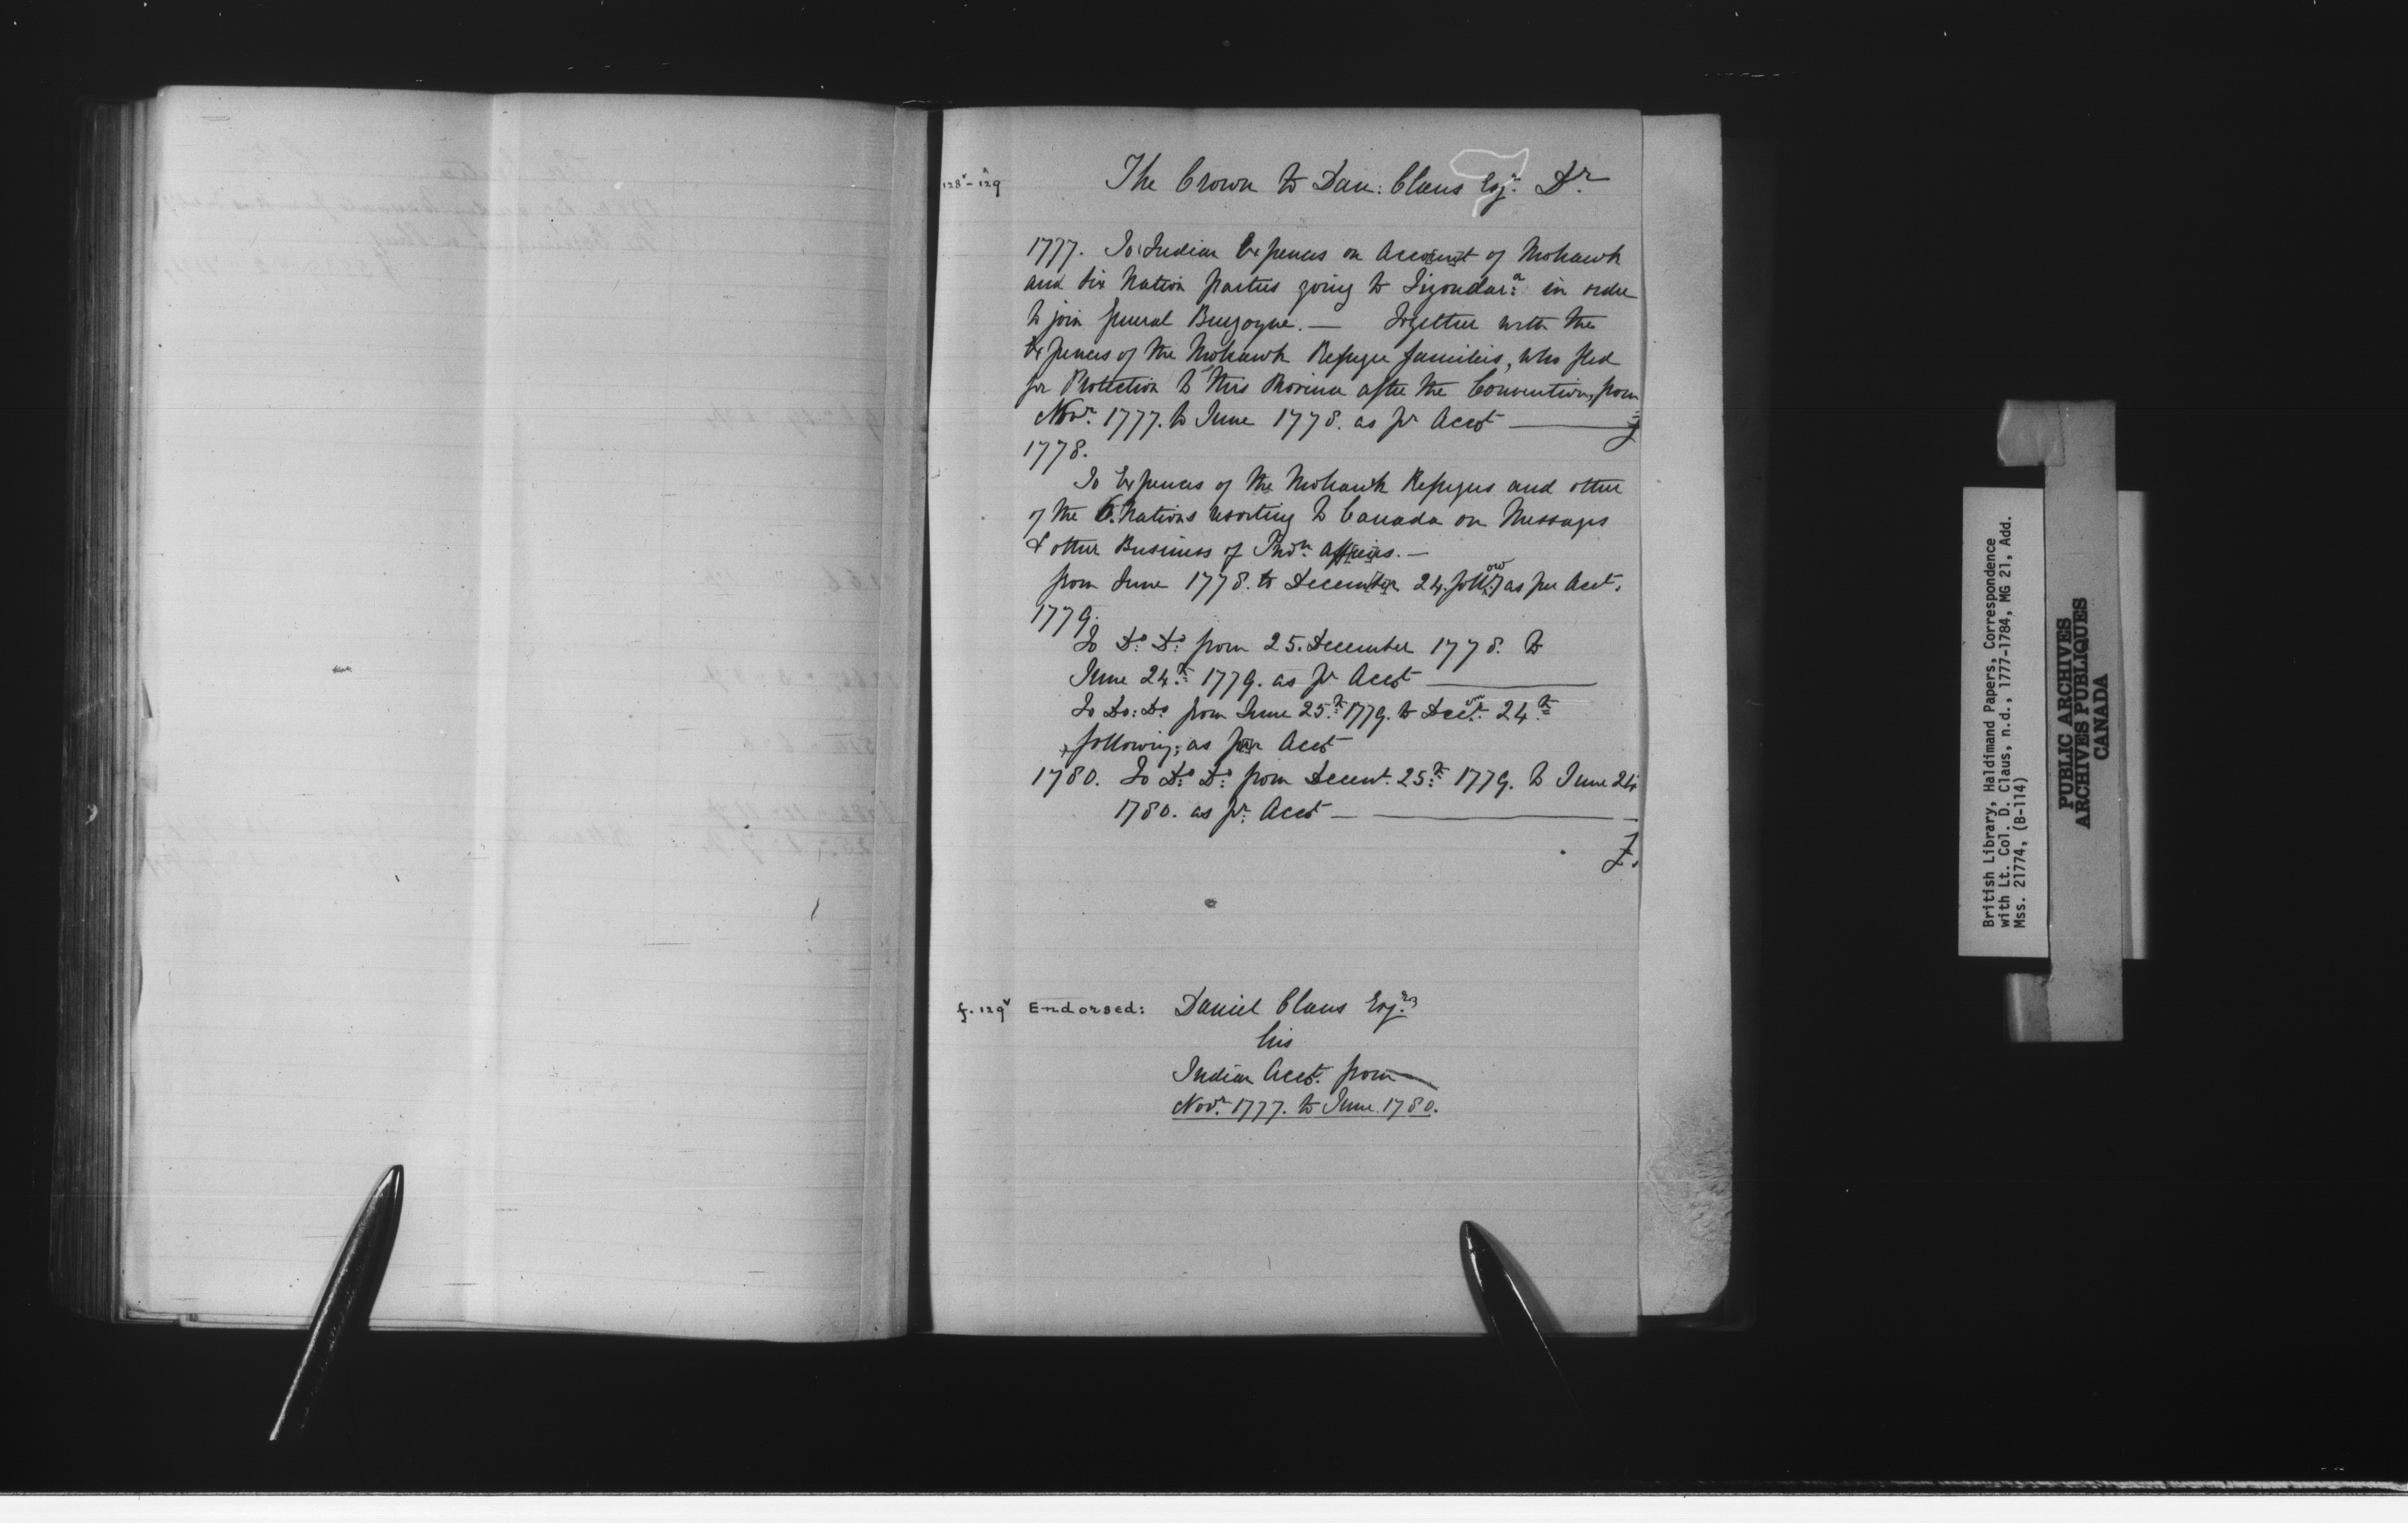 128v - 129
The Crown to Dan: Claus Esqr. Dr
1777. To Indian Expences on Account of Mohawk
and Six Nation parties going to Tiyondar:a in order
to join General Burgoyne. — Together with the
Expences of the Mohawk Refugee families, who fled
for Protection to this Province after the Convention, from
Novr. 1777. to June 1778. as pr Acct —
1778.
To Expences of the Mohawk Refugees and other
of the 6. Nations resorting to Canada on Messages
& other Business of Indn. affairs. —
from June 1778. to December 24. follow:g as per Acct.
1779.
To Do: Do: from 25. December 1778. to
June 24th: 1779. as pr Acct —
To Do: Do: from June 25th: 1779. to 24th
following; as per Acct
1780. To Do: Do: from Decemr. 25th: 1779. to June 24
1780. as pr: Acct —
£.
f. 129v Endorsed: Daniel Claus Esqrs
his
Indian Acct. from
Novr. 1777. to June 1780.
British Library, Haldimand Papers, Correspondence
with Lt. Col. D. Claus, n.d., 1777-1784, MG 21, Add.
Mss. 21774, (B-114)
PUBLIC ARCHIVES
ARCHIVES PUBLIQUES
CANADA